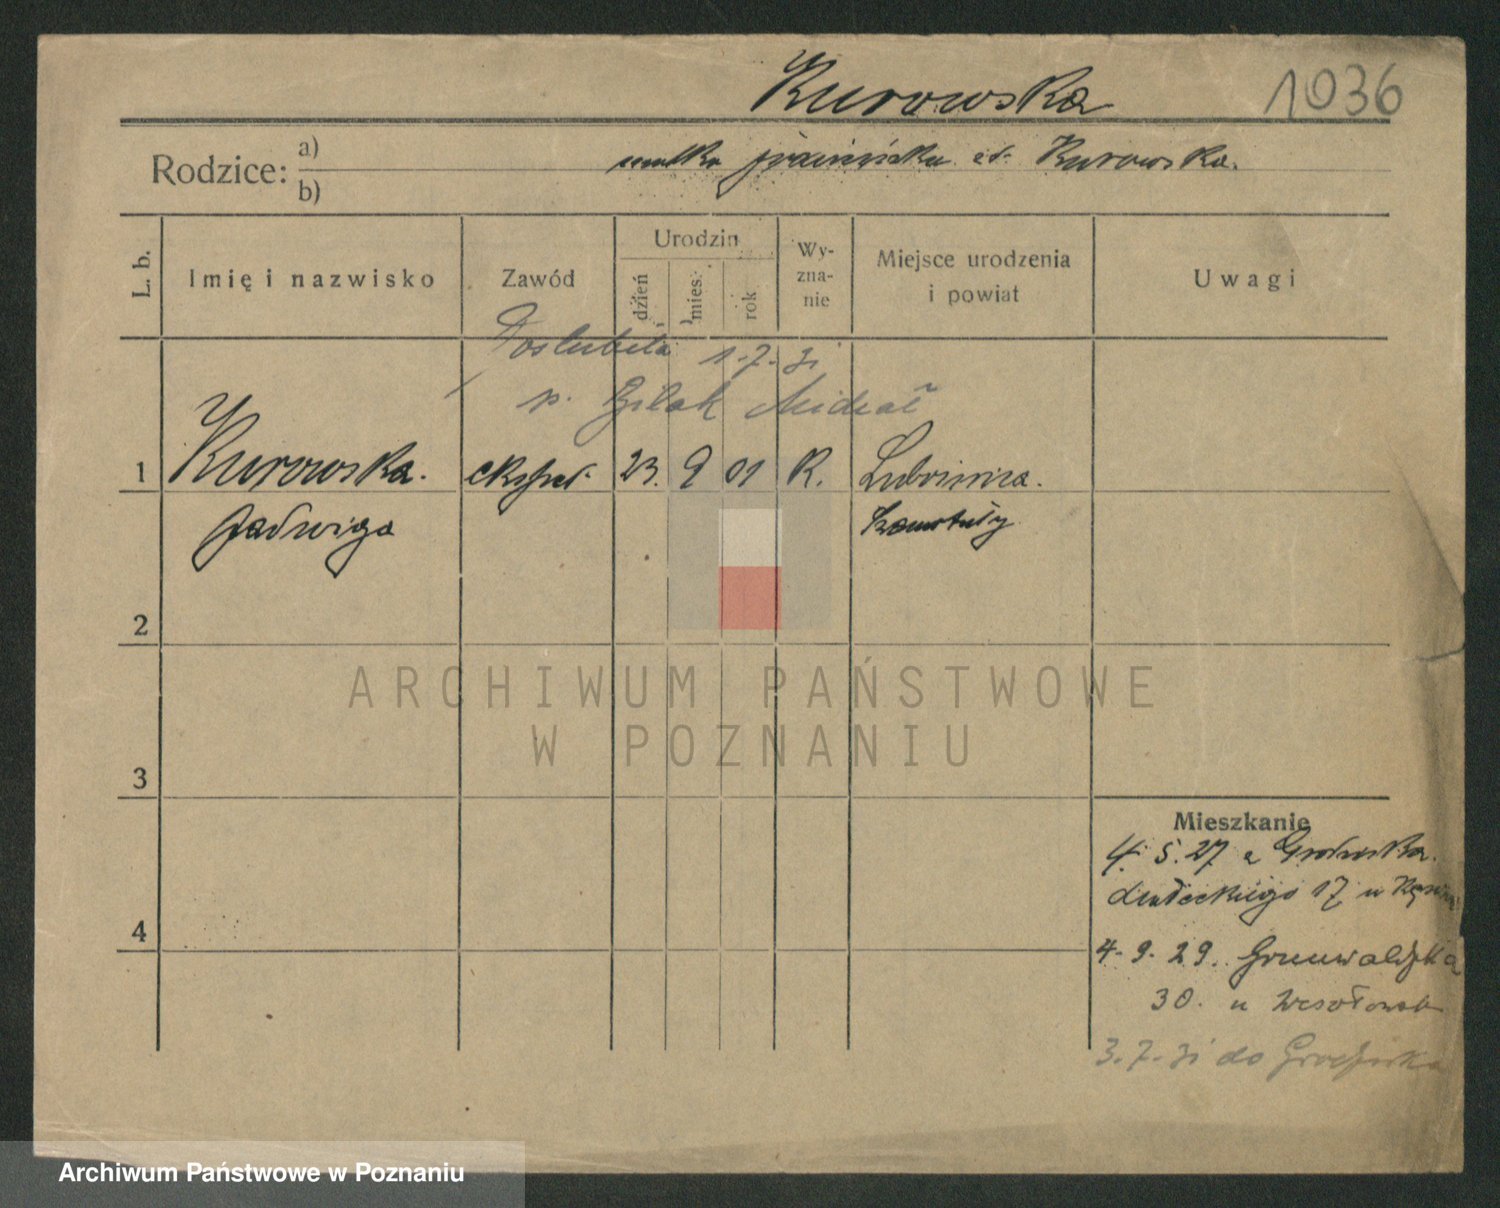 Kurowska 1036
Rodzice: a)
b)
matka Franciszka Kurowska.
L. b.
Imię i nazwisko
Zawód
Urodzin
dzień
mies.
rok
Wy-
zna-
nie
Miejsce urodzenia
i powiat
Uwagi
Poślubiła 1.7.31
p. Gilak Michał
1 Kurowska. ekspet. 23. 9 01 R. Lubosina.
Jadwiga Szamotuły
2
3
4
Mieszkanie
4. 5. 27 z Grodziska
Małeckiego 17 u
4. 9. 29. Grunwaldzka
30. u Wesołowsk
3.7.31 do Grodziska
ARCHIWUM PAŃSTWOWE
W POZNANIU
Archiwum Państwowe w Poznaniu